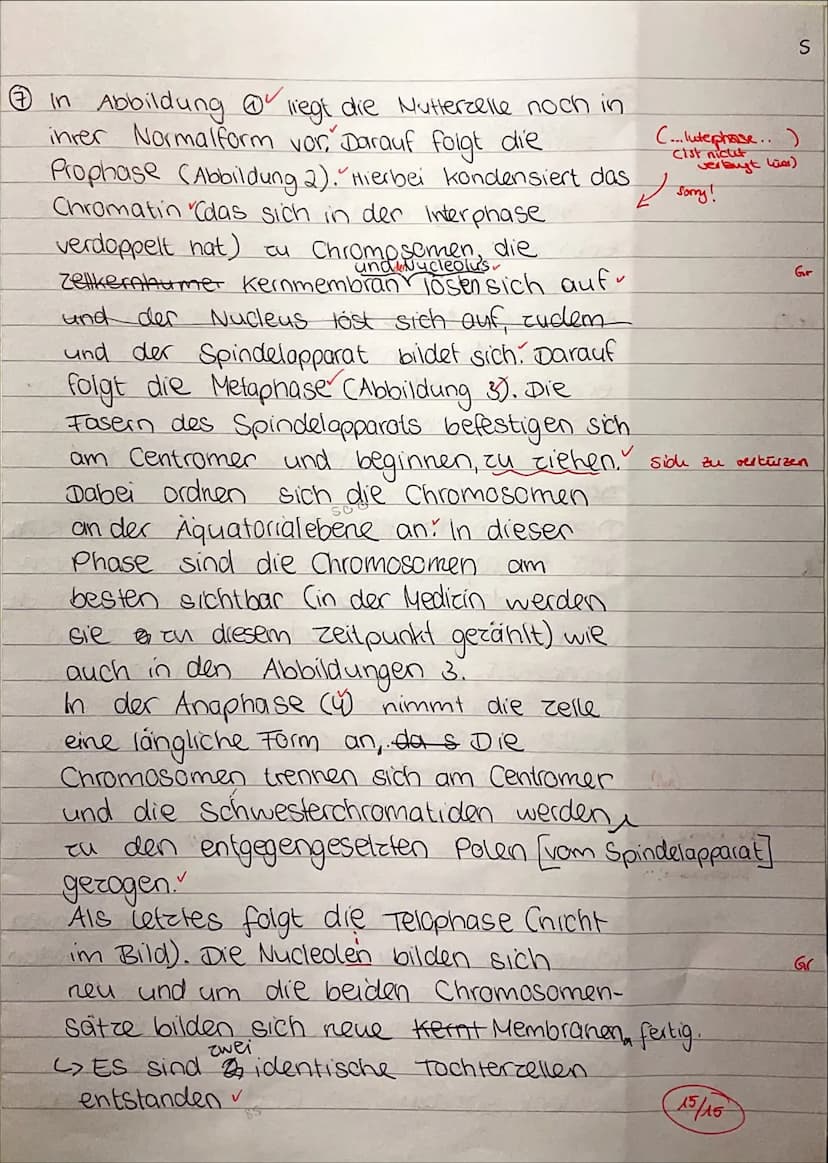 S
⑦ In Abbildung ① liegt die Mutterzelle noch in
ihrer Normalform vor, Darauf folgt die
(...Interphase.. )
(ist nicht
verlangt hier)
Sorry!
Prophase (Abbildung 2). Hierbei kondensiert das
Chromatin (das sich in der Interphase
verdoppelt hat) zu Chromosomen, die
und Nucleolus
Kernmembran lösen sich auf
Gr
und der Nucleus löst sich auf, zudem
und der Spindelapparat bildet sich. Darauf
folgt die Metaphase (Abbildung 3). Die
Fasern des Spindelapparats befestigen sich
am Centromer und beginnen, zu ziehen. sich zu verkürzen
Dabei ordnen sich die Chromosomen
an der Äquatorialebene an. In dieser
Phase sind die Chromosomen am
besten sichtbar (in der Medizin werden
sie zu diesem Zeitpunkt gezählt) wie
auch in den Abbildungen 3.
In der Anaphase (4) nimmt die Zelle
eine längliche Form an, da s Die
Chromosomen trennen sich am Centromer
und die Schwesterchromatiden werden
zu den entgegengesetzten Polen [vom Spindelapparat]
gezogen.
Als letztes folgt die Telophase (nicht
im Bild). Die Nucleolen bilden sich
Gr
neu und um die beiden Chromosomen-
sätze bilden sich neue Kernt Membranen, fertig.
zwei
↳ Es sind 2 identische Tochterzellen
entstanden
15/15